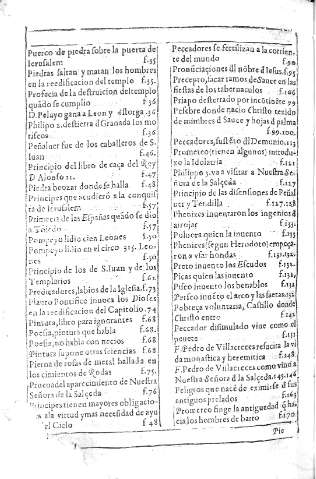 Puerco de piedra sobre la puerta de
Ierusalem f.35
Piedras saltan y matan los hombres
en la reedificacion del templo f.35.
Profecia de la destruicion del templo
quãdo se cumplio f.36
D. Pelayo gana a Leon y Astorga .36
Philipo 2. destierra d Granada los moriscos
f.36.
Peñafuer fue de los caualleros de S.
Iuan f.46.
Principio del libro de caça del Rey
D Alonso 11. f.47
Piedra beozar donde se halla f.48
Principes que acudierõ a la conquista
de Ierusalem f.57
Primera de las Españas quãdo se dio
a Toledo f.57
Pompeyo lidio cien Leones f.50
Pompeyo lidio en el circo 315. Leones
f.50
Principio de los de S. Iuan y de los
Templarios f.61
Predicadores, labios de la Iglesia f.73
Platro Pontifice inuoca los Dioses
en la reedificacion del Capitolio .74
Pintura, libro para ignorantes f.68
Poesia, pintura que habla f.68
Poesia, no habla con necios f.68
Pintura supone otras sciencias f.68
Pieron de rosas de metal hallada en
los cimientos de Rodas f.75
Proceso del aparecimiento de Nuestra
Señora de la Salçeda f.76
Principes tienen mayores obligaciones
a la virtud y mas necesidad de ayuda
del Cielo f.48
Peccadores se fertilizan a la corriente
del mundo f.90
Pronũciaciones dl nõbre d Iesus. f.95
Precepto, sacar ramos de Sauce en las
fiestas de los tabernaculos f.106
Priapo desterrado por incõtinẽte 99
Pesebre donde nacio Christo texido
de mimbres d Sauce y hojas d palma
f.99.100.
Peccadores, sustẽto dl Demonio .113
Prometeo (tienen algunos) introduxo
la Idolatria f.121
Philippo 3. va a visitar a Nuestra Señora
de la Salçeda f.127
Principio de las disensiones de Peñalver
y Tendilla f.127.128
Phenices inuentaron los ingenios d
arrojar f.131
Polores quien la inuento f.131
Phenices (segun Herodoto) empeçaron
a vsar hondas f.131.132.
Preto inuento los Escudos f.132.
Picas quien las inuento f.131
Piseo inuento los benablos f.131
Perseo inuẽto el arco y las saetas .132
Pobreça voluntaria, Castillo donde
Christo entro f.141
Peccador disimulado viue como el
puente f.133
F. Pedro de Villacreces resucita la vida
monastica y heremitica f.148
F. Pedro de Villacreces como vino a
Nuestra Señora d la Salçeda .145.146
Peligros que naçẽ de eximirse d sus
antiguos prelados f.163
Prometeo finge la antiguedad q̃ hacia
los hombres de barro f.170
Pie